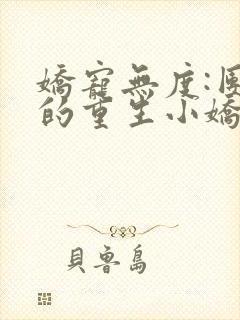 嬌寵無度:
的重生小嬌
貝魯島